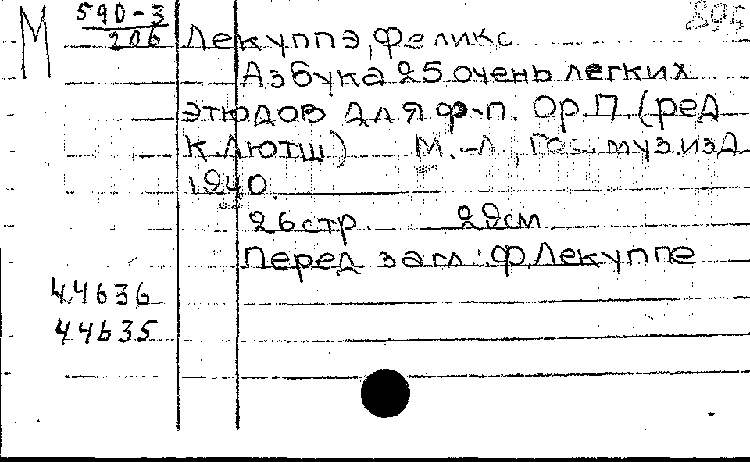 М 590-3
206
Лекуппэ, Феликс
Азбука 25 очень легких
этюдов для ф-п. Ор. П (ред
К. Лютш) М.-Л., Гос. муз. изд
1940.
26 стр. 29см
Перед загл: Ф. Лекуппе
44636
44635